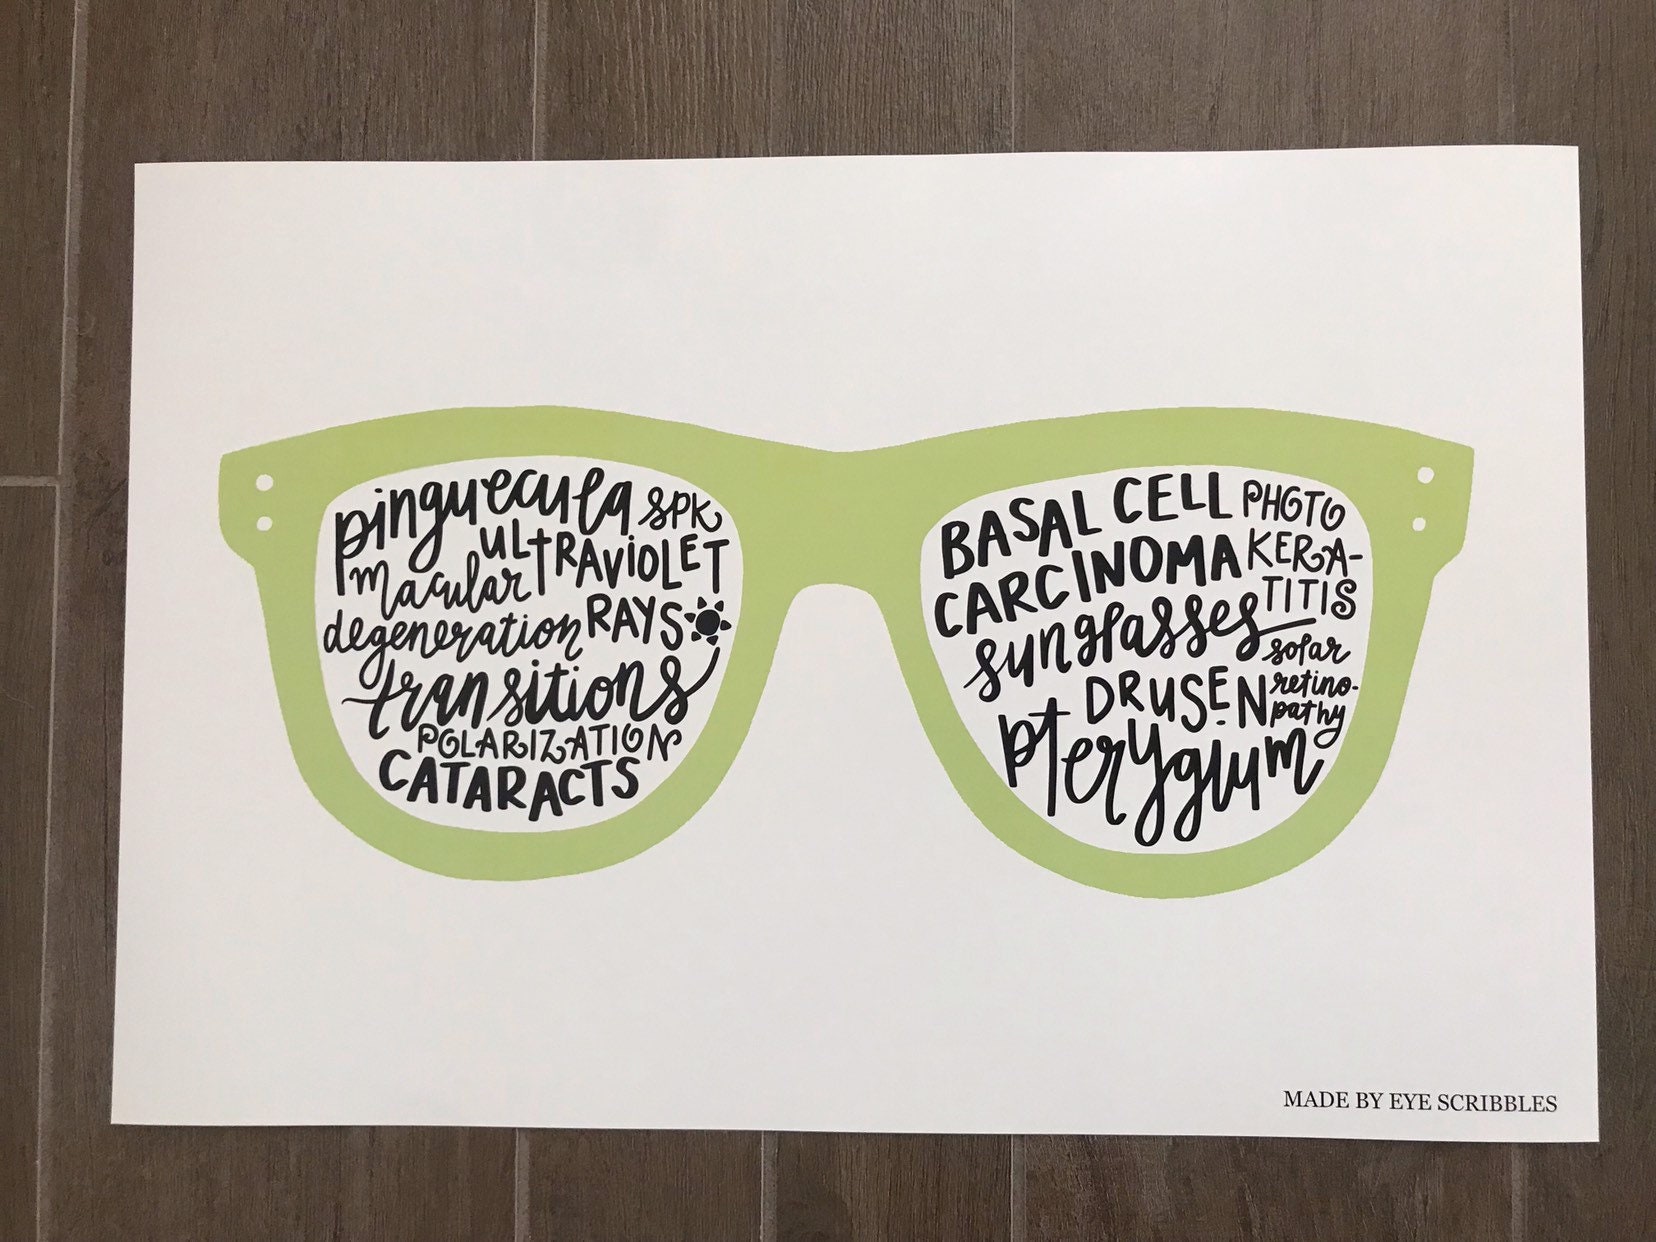 pinguecula SPK
ULtRAViOLET
macular
degeneration RAYS
transitions
POLARIZATION
CATARACTS
BASAL CELL PHOTO
CARCINOMA KERA-
TITIS
sunglasses
solar
DRUSEN retino-
pathy
pterygium
MADE BY EYE SCRIBBLES